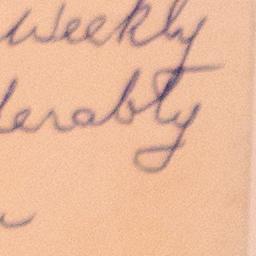 Weekly
derably